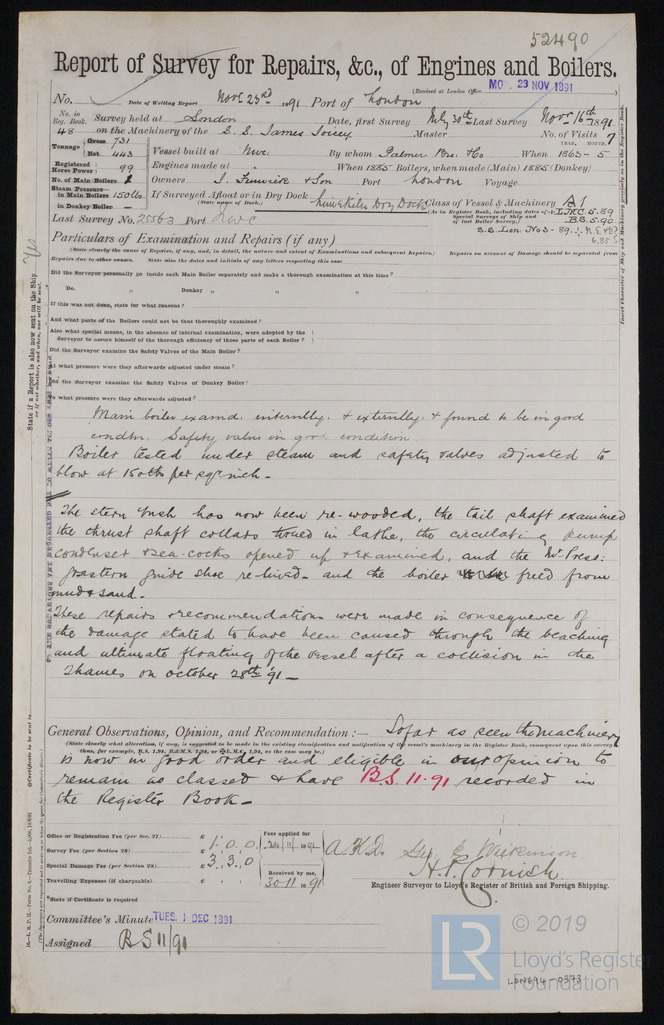 52490
Report of Survey for Repairs, &c., of Engines and Boilers.
(Revised at London Office.
MO. 23 NOV 1891
No. Date of Writing Report Novr 23rd 1891 Port of London
No. in Reg. Book. Survey held at London Date, first Survey July 30th Last Survey Novr 16th 1891
48 on the Machinery of the S.S. James Joicey Master No. of Visits 7
Tonnage Gross 731
Net 443
Vessel built at Nwc. By whom Palmer Bros. & Co When 1863-5
YEAR. MONTH.
Registered Horse Power 99 Engines made at " When 1885 Boilers, when made (Main) 1885 (Donkey)
No. of Main Boilers 1 Owners J. Fenwick & Son Port London Voyage
Steam Pressure in Main Boilers 150lbs If Surveyed Afloat or in Dry Dock Dry Dock Class of Vessel & Machinery A1
(State name of Dock.)
in Donkey Boiler —
(As in Register Book, including dates of Special Surveys of Ship and of last Boiler Survey.)
L.M.C. 5.89
B.S. 5.90
Last Survey No. 25563 Port Nwc
S.S. Lon. No 3 - 89
Particulars of Examination and Repairs (if any)
(State clearly the cause of Repairs, if any, and, in detail, the nature and extent of Examinations and subsequent Repairs.) Repairs on account of Damage should be separated from
Repairs due to other causes. State also the dates and initials of any letters respecting this case
Did the Surveyor personally go inside each Main Boiler separately and make a thorough examination at this time?
Do. " Donkey " " "
If this was not done, state for what reasons?
And what parts of the Boilers could not be thus thoroughly examined?
Also what special means, in the absence of internal examination, were adopted by the
Surveyor to assure himself of the thorough efficiency of those parts of each Boiler?
Did the Surveyor examine the Safety Valves of the Main Boiler?
At what pressure were they afterwards adjusted under steam?
Did the Surveyor examine the Safety Valves of Donkey Boiler?
To what pressure were they afterwards adjusted?
Main boiler examd. internlly. & externlly. & found to be in good
condtn. Safety valves in good condition
Boiler tested under steam and safety valves adjusted to
blow at 150lbs per sqr inch.-
The stern bush has now been re-wooded, the tail shaft examined
the thrust shaft collars turned in lathe, the circulating pump
condenser & sea-cocks opened up & examined, and the Hr. Press:
guide shoe re-lined. and the boiler freed from
mud & sand.-
These repairs & recommendations were made in consequence of
the damage stated to have been caused through the beaching
and ultimate floating of the vessel after a collision in the
Thames on October 28th '91 —
General Observations, Opinion, and Recommendation:— So far as seen the machinery
(State clearly what alteration, if any, is suggested to be made in the existing classification and notification of the vessel's machinery in the Register Book, consequent upon this survey
thus, for example, B.S. 1,91, B.&M.S. 1,91, or L.M.C. 1,91, as the case may be.)
is now in good order and eligible in our opinion to
remain as classed & have B.S. 11.91 recorded in
the Register Book.—
Office or Registration Fee (per Sec. 27) £
Survey Fee (per Section 28) £ 1. 0. 0.
Special Damage Fee (per Section 28) £ 3. 3. 0
Travelling Expenses (if chargeable) £
*State if Certificate is required
Fees applied for 24/11/1891
Received by me, 30-11-1891
A.K.D.
Geo. E. Wilkinson
H. P. Cornish.
Engineer Surveyor to Lloyd's Register of British and Foreign Shipping.
Committee's Minute TUES. 1 DEC 1891
Assigned BS 11/91
State if a Report is also now sent on the Ship
Yes
© 2019
LR Lloyd's Register
Foundation
LON694-0373